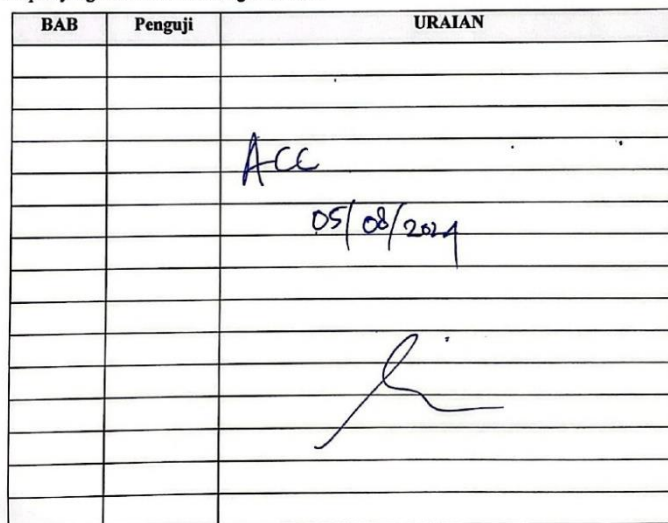 BAB Penguji URAIAN
ACC
05/08/2024